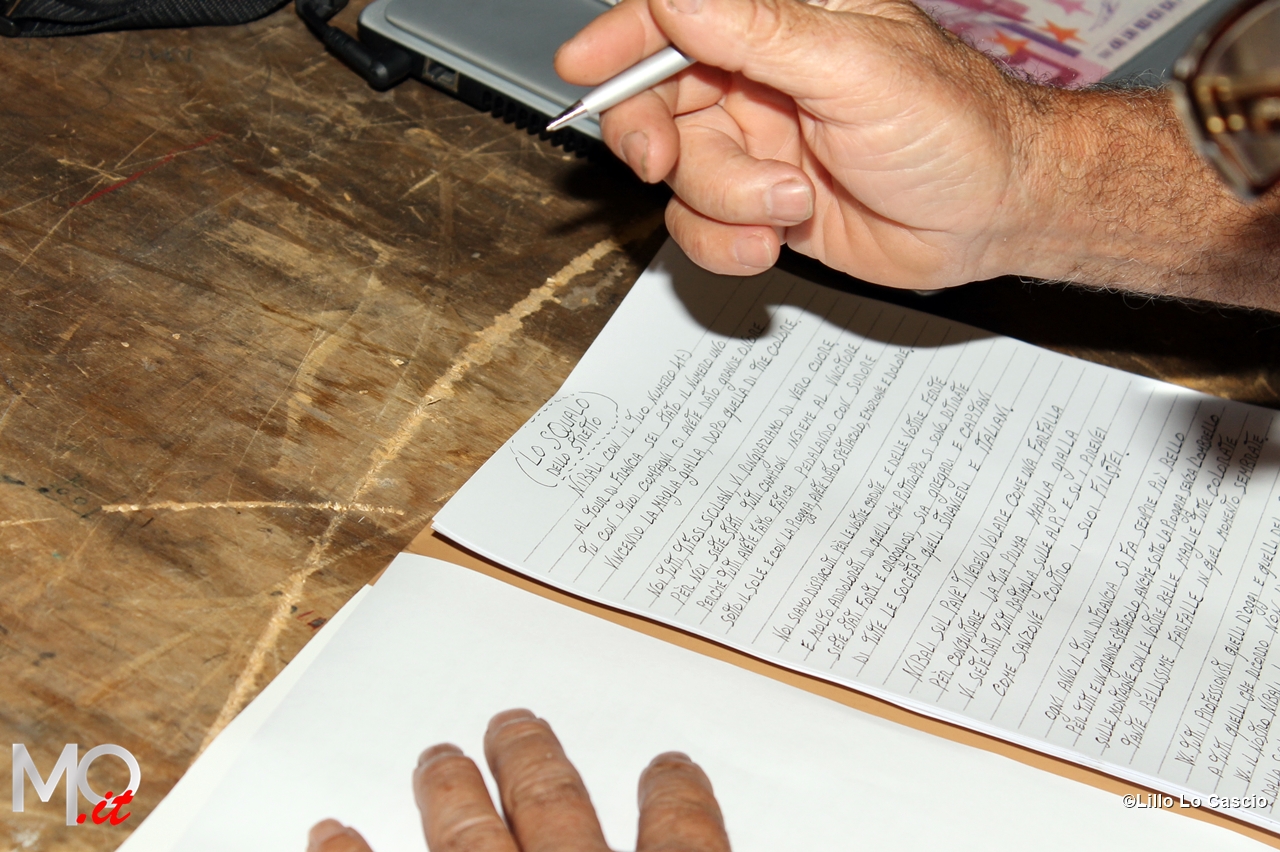 (LO SQUALO
DELLO STRETTO)
NIBALI CON IL TUO NUMERO 41:)
AL TOUR DI FRANCIA SEI STATO IL NUMERO UNO
TU CON I TUOI COMPAGNI CI AVETE DATO GRANDE ONORE
VINCENDO LA MAGLIA GIALLA, DOPO QUELLA DI TRE COLORE.
NOI TUTTI TIFOSI SICILIANI VI RINGRAZIAMO DI VERO CUORE,
PER NOI SIETE STATI TUTTI CAMPIONI INSIEME AL VINCITORE
PERCHÈ TUTTI AVETE FATO FATICA PEDALANDO CON SUDORE
SOTTO IL SOLE E CON LA PIOGGIA, AVETE DATO SPETTACOLO, EMOZIONE E DOLORE,
NOI SIAMO DISPIACIUTI PER LE VOSTRE CADUTE E DELLE VOSTRE FERITE
E MOLTO ADDOLORATI DI QUELLI CHE PURTROPPO SI SONO RITIRATI
SIETE STATI FORTI E ORGOGLIOSI, SIA GREGARI E CAPITANI
DI TUTTE LE SOCIETÀ QUELLI STRANIERI E ITALIANI,
NIBALI SUL PAVÈ TI VEDEVO VOLARE COME UNA FARFALLA
PER CONQUISTARE LA TUA PRIMA MAGLIA GIALLA
VI SIETE DATI TUTTI BATTAGLIA SULLE ALPI E SUI PIRENEI
COME SANZONE CONTRO I SUOI FILISTEI
OGNI ANNO IL TOUR DI FRANCIA SI FA SEMPRE PIÙ BELLO
PER TUTTI È UN GRANDE SPETTACOLO ANCHE SOTTO LA PIOGGIA SENZA L'OMBRELLO
SULLE MONTAGNE CON LE VOSTRE BELLE MAGLIE TUTTE COLORATE
TANTE BELLISSIME FARFALLE IN QUEL MOMENTO SEMBRATE.
VOI TUTTI PROFESSIONISTI QUELLI D'OGGI E QUELLI
A TUTTI QUELLI CHE RICORDO NOI
IL NOSTRO NIBALI
MO.it
©Lillo Lo Cascio